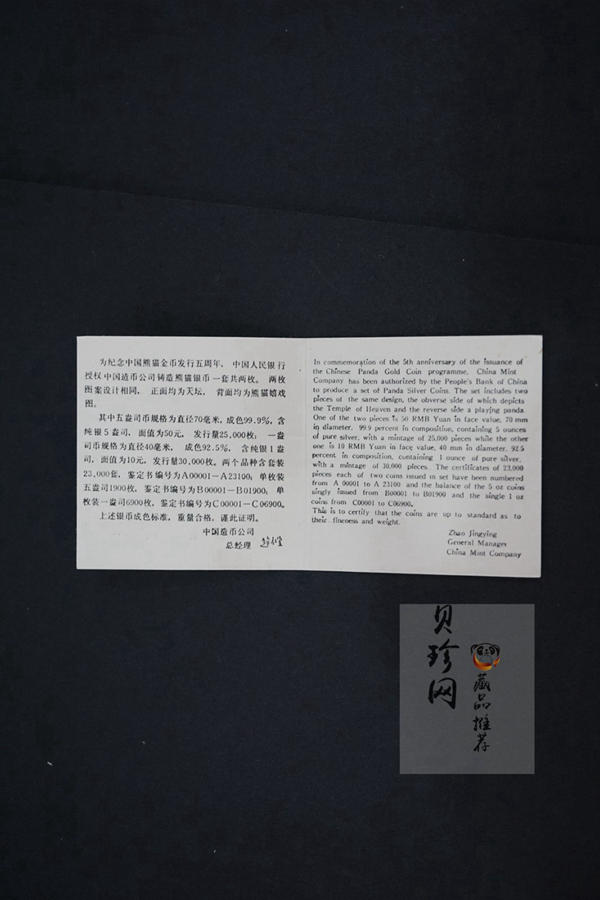 为纪念中国熊猫金币发行五周年，中国人民银行
授权中国造币公司铸造熊猫银币一套共两枚。两枚
图案设计相同，正面均为天坛，背面均为熊猫嬉戏
图。
其中五盎司币规格为直径70毫米，成色99.9%，含
纯银5盎司，面值为50元，发行量25,000枚；一盎
司币规格为直径40毫米，成色92.5%，含纯银1盎
司，面值为10元，发行量30,000枚。两个品种合套装
23,000套，鉴定书编号为A00001—A23100；单枚装
五盎司1900枚，鉴定书编号为B00001—B01900，单
枚装一盎司6900枚，鉴定书编号为C00001—C06900。
上述银币成色标准，重量合格，谨此证明。
中国造币公司
总经理
In commemoration of the 5th anniversary of the issuance of
the Chinese Panda Gold Coin programme, China Mint
Company has been authorized by the People's Bank of China
to produce a set of Panda Silver Coins. The set includes two
pieces of the same design, the obverse side of which depicts
the Temple of Heaven and the reverse side a playing panda.
One of the two pieces is 50 RMB Yuan in face value, 70 mm
in diameter, 99.9 percent in composition, containing 5 ounces
of pure silver, with a mintage of 25,000 pieces while the other
one is 10 RMB Yuan in face value, 40 mm in diameter, 92.5
percent in composition, containing 1 ounce of pure silver,
with a mintage of 30,000 pieces. The certificates of 23,000
pieces each of two coins issued in set have been numbered
from A 00001 to A 23100 and the balance of the 5 oz coins
singly issued from B00001 to B01900 and the single 1 oz
coins from C00001 to C06900.
This is to certify that the coins are up to standard as to
their fineness and weight.
Zhao Jingying
General Manager
China Mint Company
贝珍网
藏品推荐